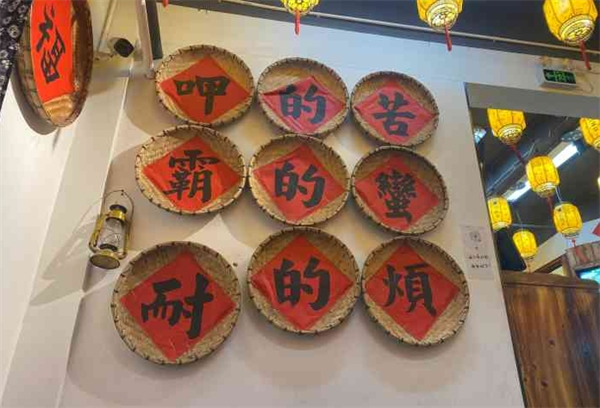 呷的苦
霸的蠻
耐的煩